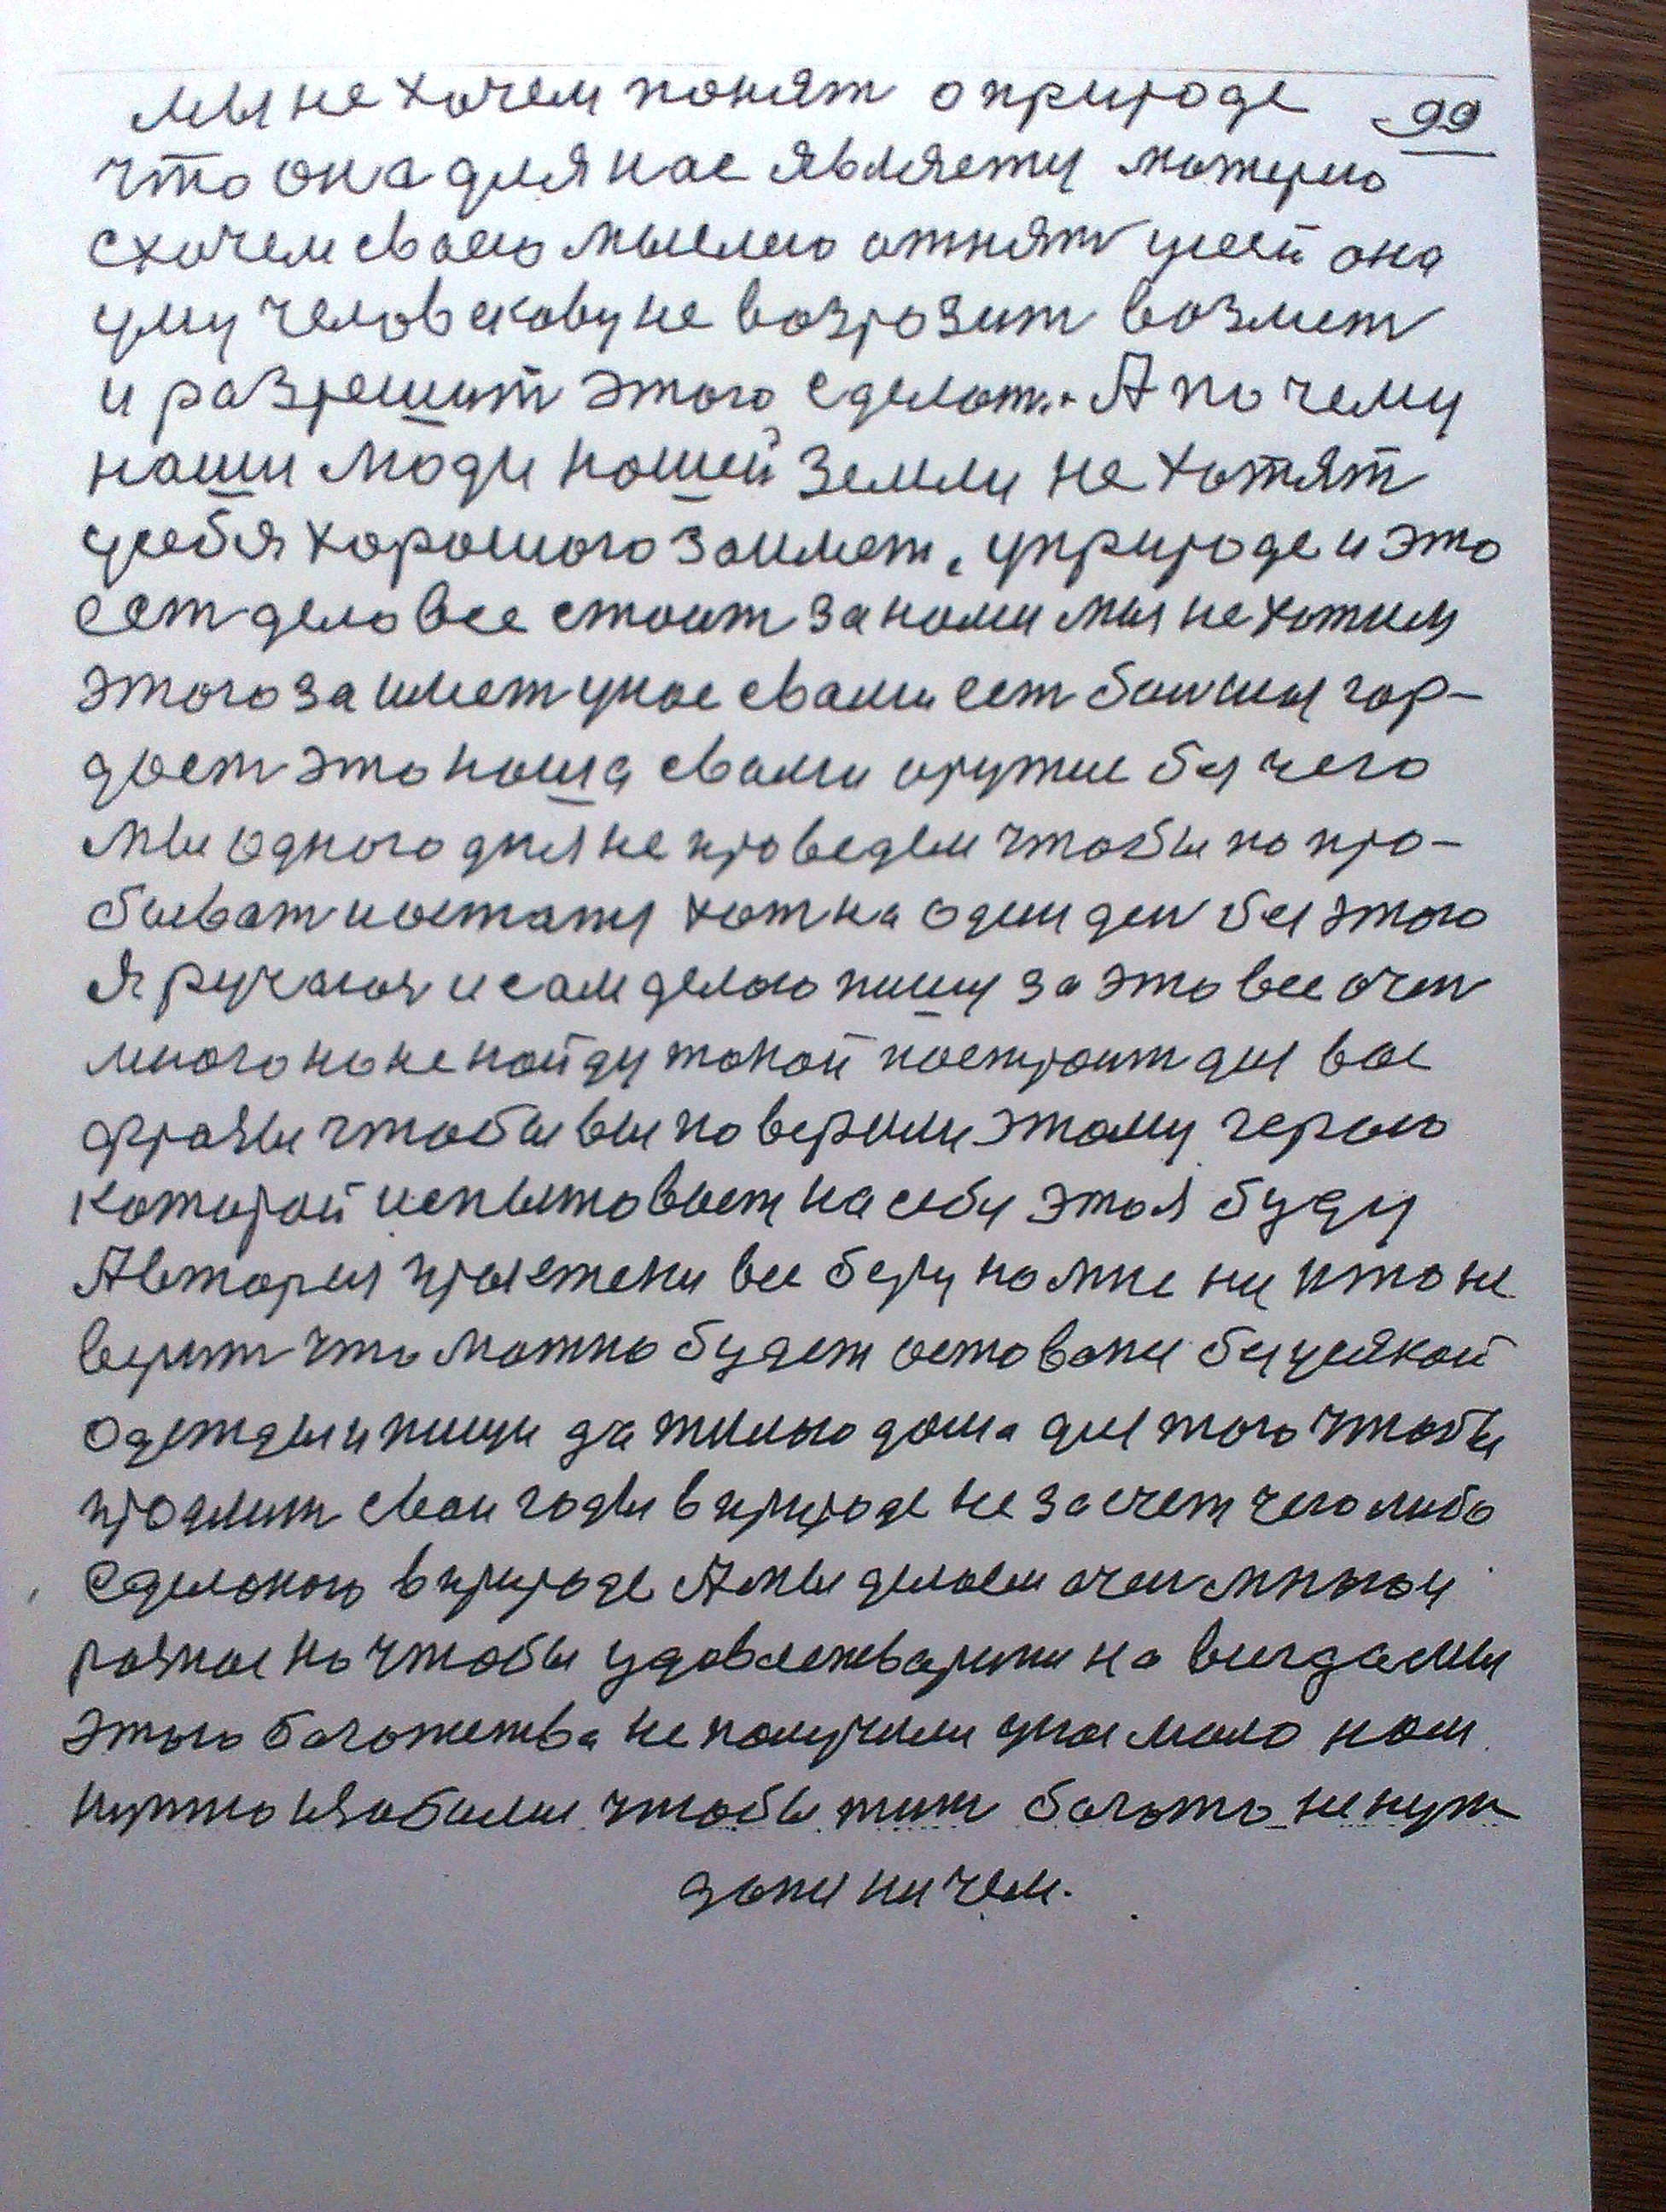 мы не хочем понят о природе 99
что она для нас являетц матерю
схочем своею мыслею отнят усей она
уму человекову не возрозит возмет
и разрешит этого сделоть. А почему
наши люди нашей земли не хотят
усебя хорошого заимет, уприроде и это
ест дело все стоит за нами мы не хотим
этого за имет унас свами ест большая гор-
дост это наша свами оружие без чего
мы одного дня не проведем чтобы попро-
бывать и остатця хот на один ден без этого
Я ручаюя и сам делаю пишу за это все очен
много но не найду такой построит для вас
фразы чтобы вы поверили этому герою
которой испытовает на себе это я буду
Автором простеки все беру но мне ни кто не
верит что можно будет остованя без усякой
одежды и пищи да жилого дома для того чтобы
продлит свои годы в природе не засчет чего либо
сделоного в природе А мы делоем очен многои
розное но чтобы удовлетварины на всигда мы
этого богожства не получили унас мало ном
нужно изобилие чтобы жит богато не нуж
доня ни чем.